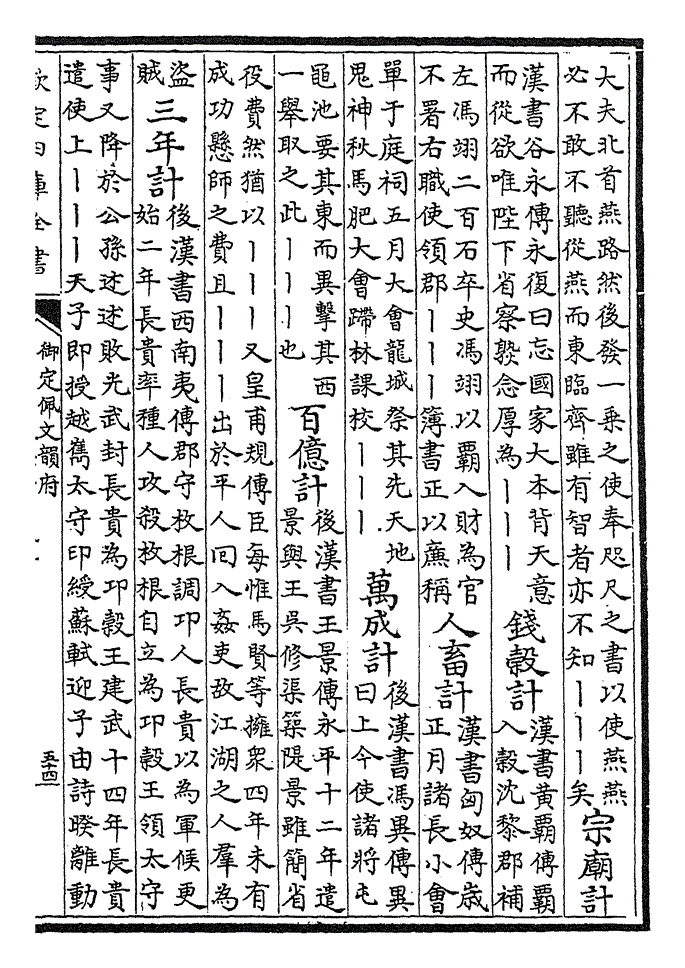 大夫北首燕路然後發一乗之使奉咫尺之書以使燕燕必不敢不聽從燕而東臨齊雖有智者亦不知丨丨丨矣宗廟計
漢書谷永傳永復曰忘國家大本背天意而從欲唯陛下省察熟念厚為丨丨丨錢穀計漢書黄霸傳霸入穀沈黎郡補
左馮翊二百石卒史馮翊以霸入財為官不署右職使領郡丨丨丨簿書正以亷稱人畜計漢書匈奴傳歳正月諸長小會
單于庭祠五月大會龍城祭其先天地鬼神秋馬肥大會蹛林課校丨丨丨萬成計後漢書馮異傳異曰上今使諸將屯
黽池要其東而異擊其西一舉取之此丨丨丨也百億計後漢書王景傳永平十二年遣景與王吳修渠築隄景雖簡省
役費然猶以丨丨丨又皇甫規傳臣每惟馬賢等擁衆四年未有成功懸師之費且丨丨丨出於平人回入姦吏故江湖之人羣為
盜賊三年計後漢書西南夷傳郡守枚根調卭人長貴以為軍候更始二年長貴率種人攻殺枚根自立為卭穀王領太守
事又降於公孫述述敗光武封長貴為卭穀王建武十四年長貴遣使上丨丨丨天子即授越巂太守印綬蘇軾迎子由詩暌離動
欽定四庫全書
御定佩文韻府
五十四